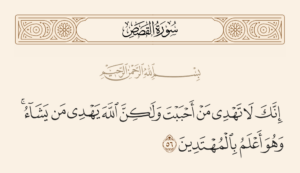 سُورَةُ القَصَصِ
بِسْمِ اللَّهِ الرَّحْمَٰنِ الرَّحِيمِ
إِنَّكَ لَا تَهْدِى مَنْ أَحْبَبْتَ وَلَٰكِنَّ ٱللَّهَ يَهْدِى مَن يَشَآءُ ۚ
وَهُوَ أَعْلَمُ بِٱلْمُهْتَدِينَ ٥٦